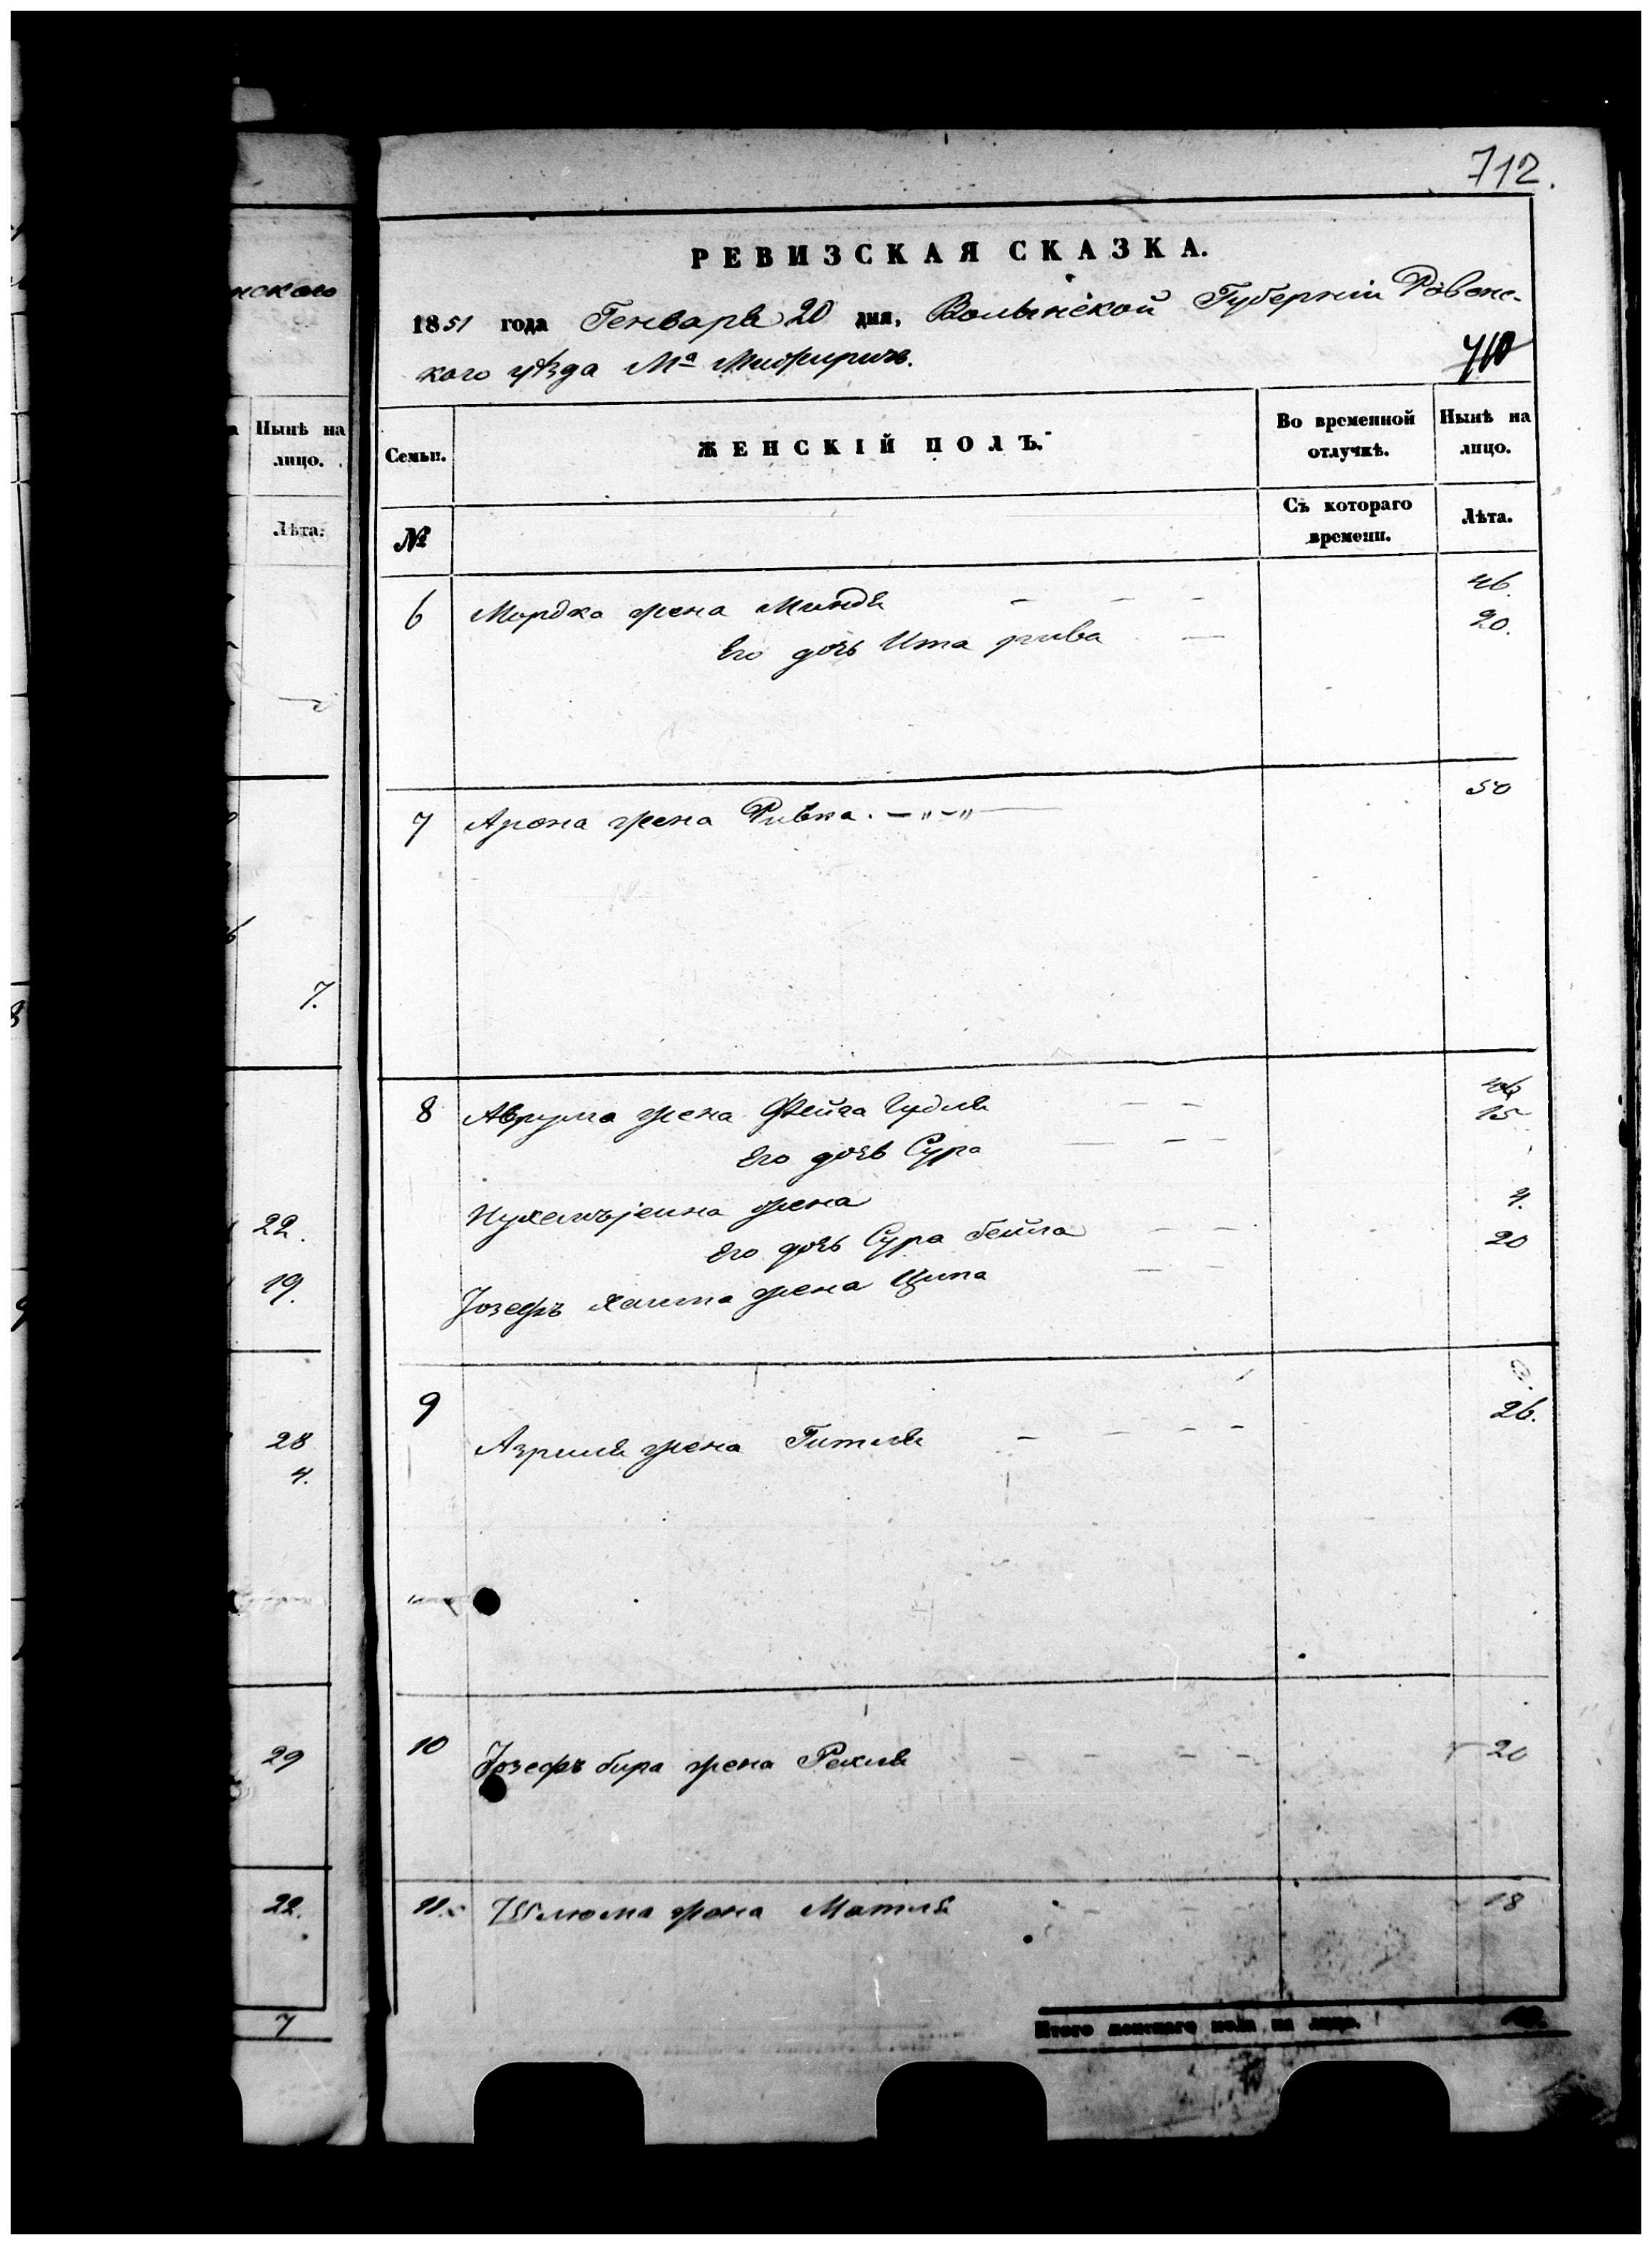 нского
Нынѣ на
лицо.
Лѣта.
7.
22.
19.
28
4.
29
22.
7
712.
РЕВИЗСКАЯ СКАЗКА.
1851 года Генваря 20 дня, Волынской Губерніи Ровенс-
кого уѣзда Мª Межиричъ.
710
Семьи.
ЖЕНСКІЙ ПОЛЪ.
Во временной
отлучкѣ.
Нынѣ на
лицо.
№
Съ котораго
времени.
Лѣта.
6 Мордка жена Миндя 46.
Его дочь Ита рива 20.
7 Арона жена Ривка. 50
8 Аврума жена Фейга Гудля 46
Его дочь Сура 15
жена
Его дочь Сура бейла 4.
Јозефъ Хаима жена Ципа 20
9
Азриля жена Гитля 26.
10 Јозефъ бира жена Рехля 20
11. Шлюма жена Матля 18
Итого женскаго пола на лицо. 10.